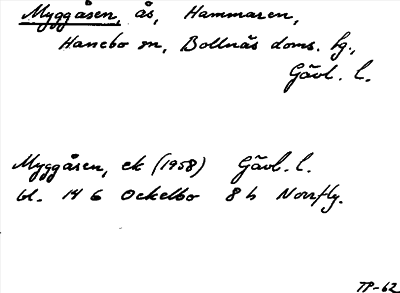 Myggåsen, ås, Hammaren,
Hanebo sn, Bollnäs doms. sg.,
Gävl. l.
Myggåsen, ek (1958) Gävl. l.
bl. 14 G Ockelbo 8 h Norrfly.
TP-62